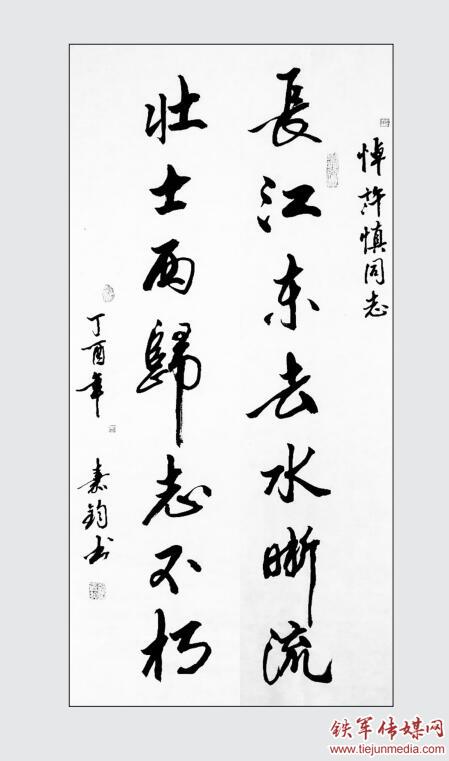 悼許慎同志
長江东去水晰流
壮士西歸志不朽
丁酉年 嘉鈞书
铁军传媒网
www.tiejunmedia.com